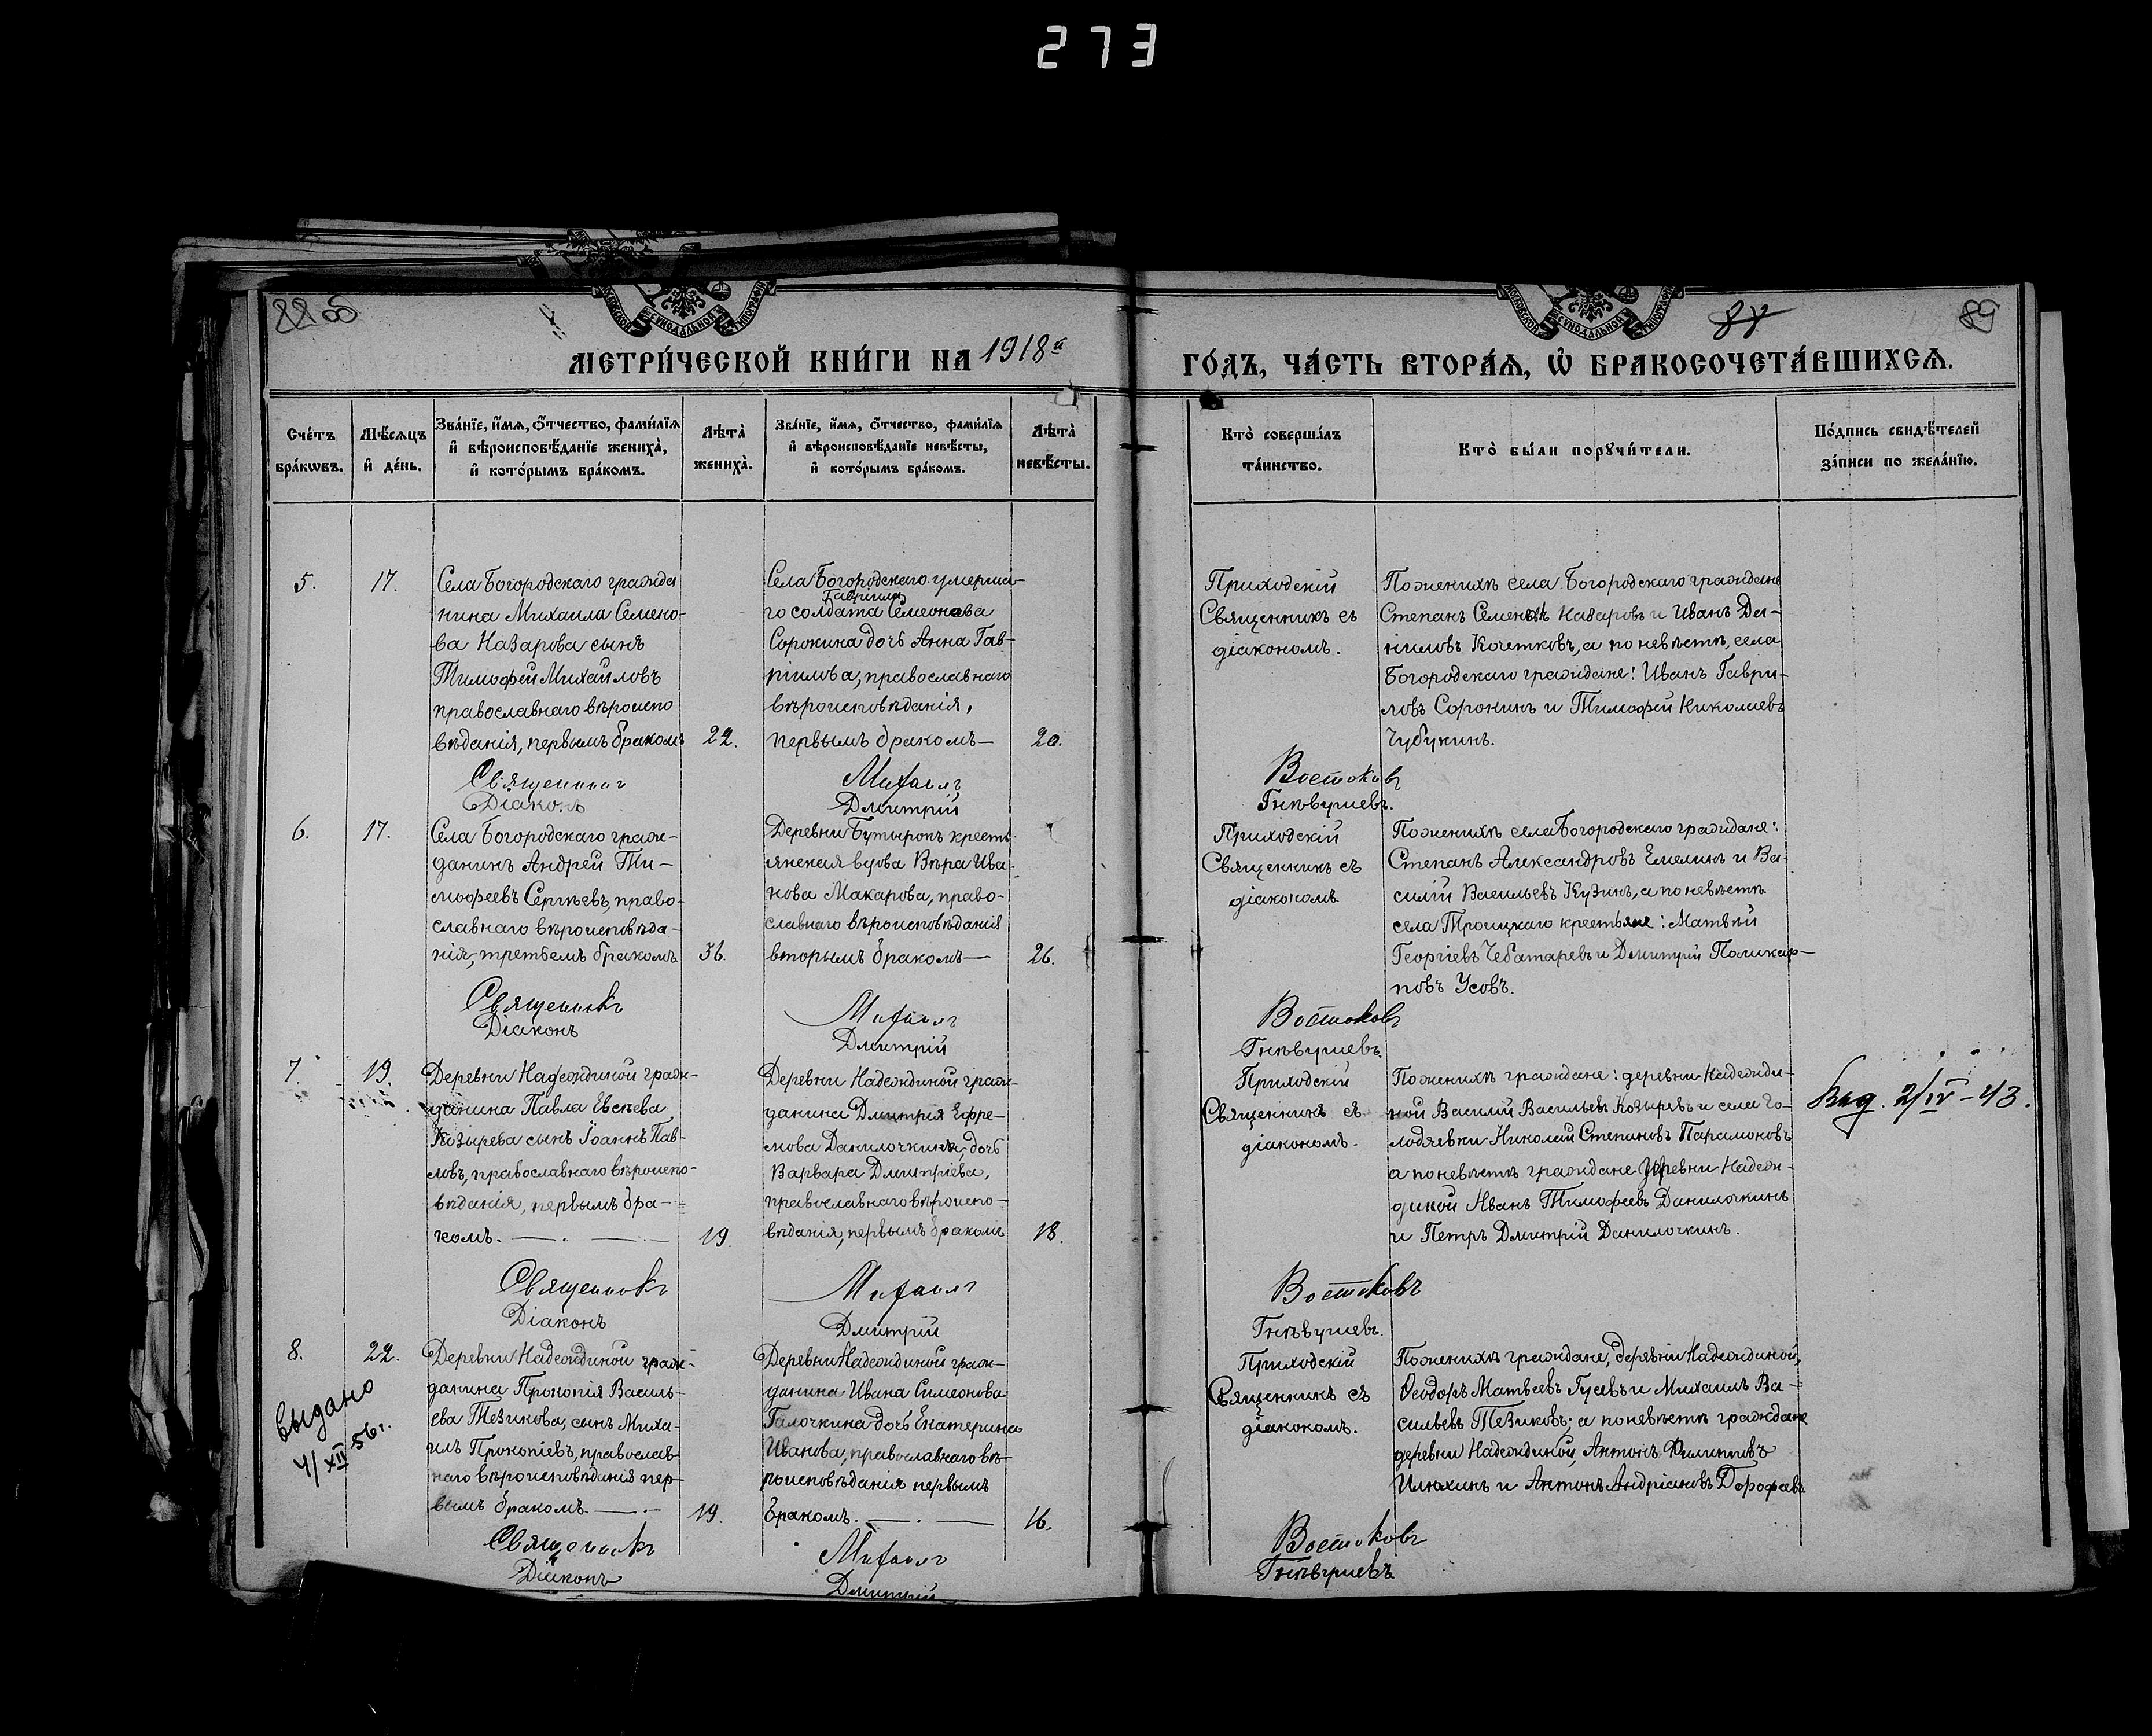 273
88 об
87
89
МЕТРИ́ЧЕСКОЙ КНИ́ГИ НА 1918й ГО́ДЪ, ЧА́СТЬ ВТОРА́Я, Ѡ БРАКОСОЧЕТА́ВШИХСѦ.
Сче́тъ бра́кѡвъ.
Мѣ́сѧцъ и҆ де́нь.
Зва́нїе, и҆́мѧ, ѻ҆́тчество, фами́лїѧ
и҆ вѣроисповѣ́данїе жениха̀,
и҆ кото́рымъ бра́комъ.
Лѣта̀ жениха̀.
Зва́нїе, и҆́мѧ, ѻ҆́тчество, фами́лїѧ
и҆ вѣроисповѣ́данїе невѣ́сты,
и҆ кото́рымъ бра́комъ.
Лѣта̀ невѣ́сты.
Кто̀ соверша́лъ
та́инство.
Кто̀ бы́ли порꙋчи́тели.
По́дпись свидѣ́телей
за́писи по жела́нїю.
5.
17.
Села Богородскаго гражда
нина Михаила Семено-
ва Назарова сынъ
Тимофей Михаиловъ
православнаго вѣроиспо
вѣданія, первымъ бракомъ
22.
Села Богородскаго умерша-
Гавріила
го солдата Семенова
Сорокина дочь Анна Гав-
ріилова, православнаго
вѣроисповѣданія,
первымъ бракомъ—
20.
Приходскій
Священникъ съ
діакономъ.
По женихѣ села Богородскаго граждане
Степанъ Семеновъ Назаровъ и Иванъ Да-
ниловъ Кочетковъ, а по невѣстѣ, села
Богородскаго граждане: Иванъ Гаври-
ловъ Сорокинъ и Тимофей Николаевъ
Чубукинъ.
Священникъ Михаилъ Востоковъ
Діаконъ Дмитрій Гнѣвушевъ.
6.
17.
Села Богородскаго граж-
данинъ Андрей Ти-
мофеевъ Сергѣевъ, право-
славнаго вѣроисповѣда-
нія, третьемъ бракомъ
36.
Деревни Бутырокъ кресть-
янская вдова Вѣра Ива-
нова Макарова, право-
славнаго вѣроисповѣданія
вторымъ бракомъ—
26.
Приходскій
Священникъ съ
діакономъ
По женихѣ села Богородскаго граждане:
Степанъ Александровъ Емелинъ и Ва-
силій Васильевъ Кузинъ, а по невѣстѣ
села Троицкаго крестьяне: Матвѣй
Георгіевъ Чеботаревъ и Дмитрій Поликар-
повъ Усовъ.
Священникъ Михаилъ Востоковъ
Діаконъ Дмитрій Гнѣвушевъ.
7.
19.
Деревни Надеждиной граж-
данина Павла Евсѣева
Козырева сынъ Іоаннъ Пав-
ловъ, православнаго вѣроиспо-
вѣданія, первымъ бра-
комъ.
19.
Деревни Надеждиной граж-
данина Дмитрія Ефре-
мова Данилочкина, дочь
Варвара Дмитріева,
православнаго вѣроиспо-
вѣданія, первымъ бракомъ
18.
Приходскій
Священникъ съ
діакономъ.
По женихѣ граждане: деревни Надежди-
ной Василій Васильевъ Козыревъ и села Го-
лодяевки Николай Степановъ Парамоновъ
а по невѣстѣ граждане деревни Надеж-
диной Иванъ Тимофеевъ Данилочкинъ
и Петръ Дмитрій Данилочкинъ.
Выд. 2/IV-43.
Священникъ Михаилъ Востоковъ
Діаконъ Дмитрій Гнѣвушевъ.
8.
22.
выдано
4/XII 56г.
Деревни Надеждиной граж-
данина Прокопія Василь-
ева Тезикова, сынъ Миха-
илъ Прокопіевъ, православ-
наго вѣроисповѣданія пер-
вымъ бракомъ.
19.
Деревни Надеждиной граж-
данина Ивана Симеонова
Галочкина дочь Екатерина
Иванова, православнаго вѣ-
роисповѣданія первымъ
бракомъ.
16.
Приходскій
Священникъ съ
діакономъ.
По женихѣ граждане, деревни Надеждиной,
Феодоръ Матвеевъ Гусевъ и Михаилъ Ва-
сильевъ Тезиковъ; а по невѣстѣ граждане
деревни Надеждиной, Антонъ Филиповъ
Илюхинъ и Антонъ Андріановъ Дорофеевъ
Священникъ Михаилъ Востоковъ
Діаконъ Дмитрій Гнѣвушевъ